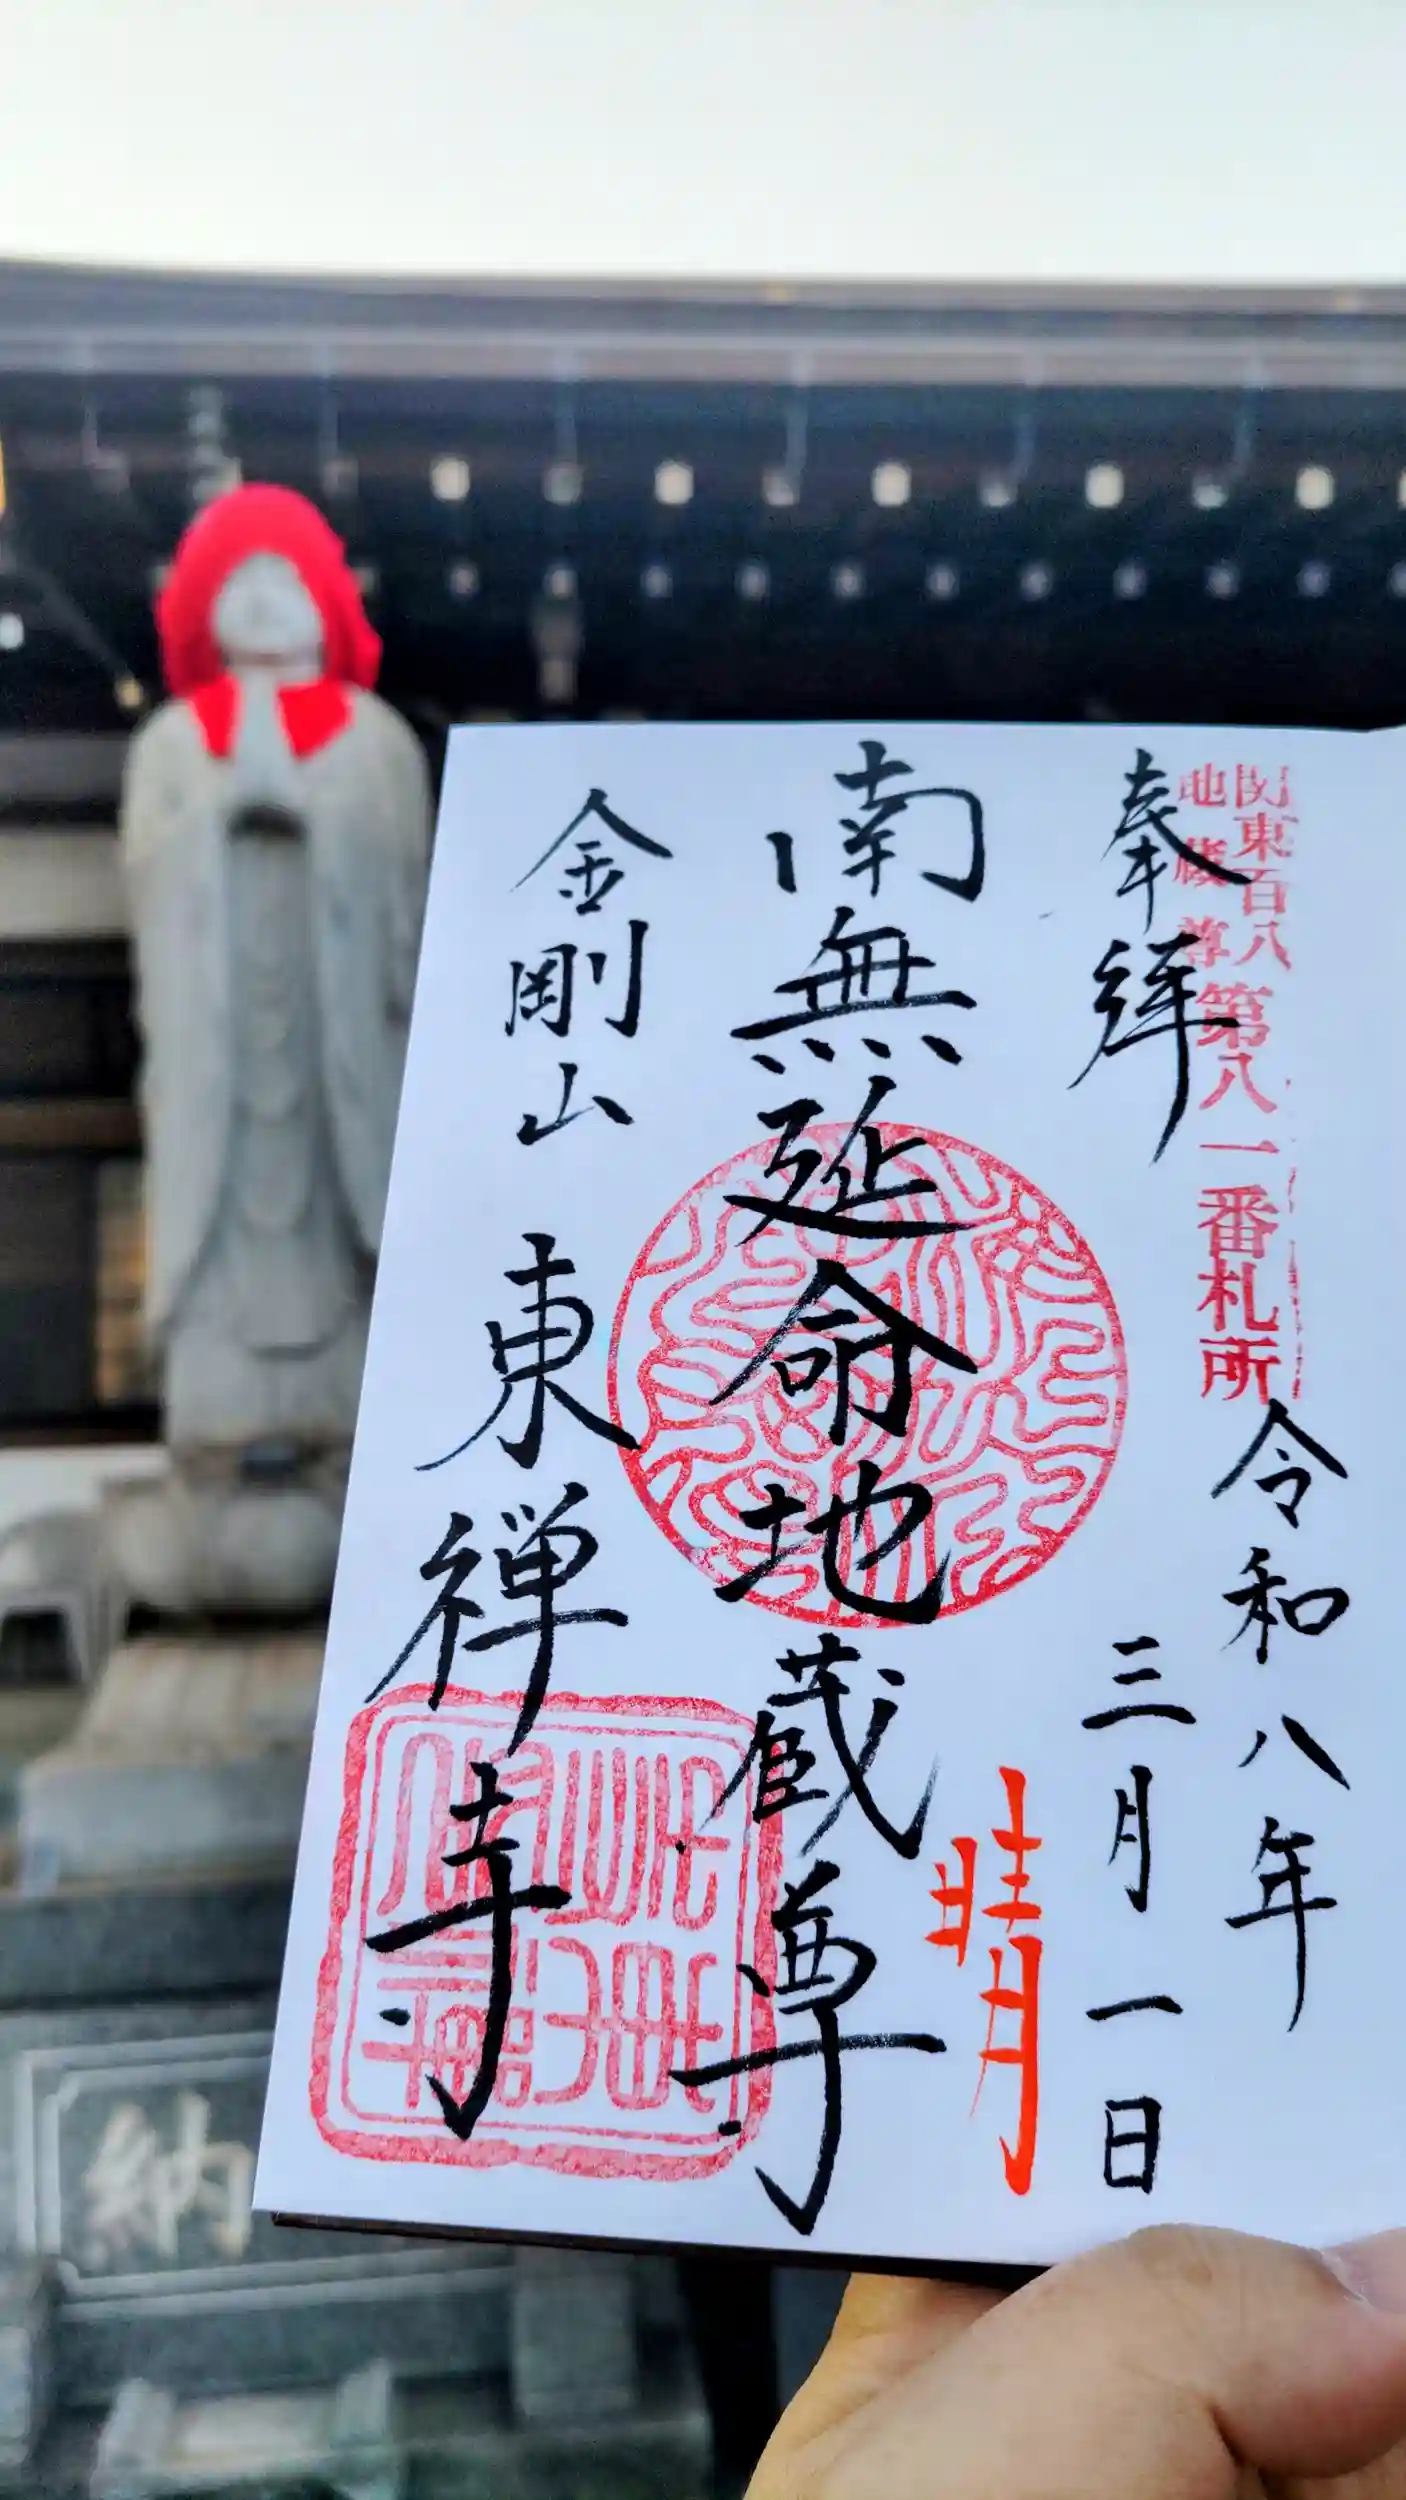 関東百八
地蔵尊
第八一番札所
奉拝
令和八年
三月一日
晴
南無延命地蔵尊
金剛山 東禅寺
納